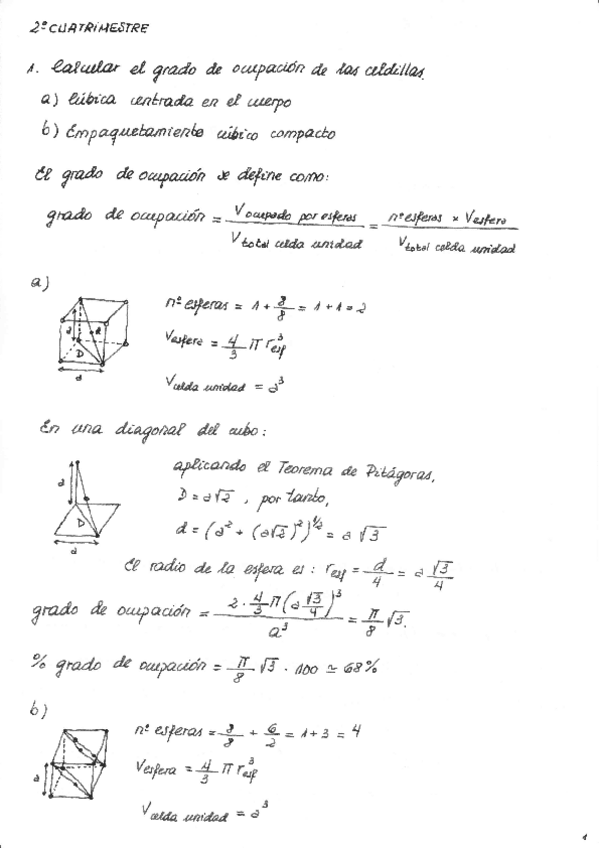 2º CUATRIMESTRE
1. Calcular el grado de ocupación de las celdillas.
a) Cúbica centrada en el cuerpo
b) Empaquetamiento cúbico compacto
El grado de ocupación se define como:
grado de ocupación = V ocupado por esferas / V total celda unidad = nº esferas × V esfera / V total celda unidad
a)
a d D a
nº esferas = 1 + 8/8 = 1 + 1 = 2
V esfera = 4/3 π r³ esf
V celda unidad = a³
En una diagonal del cubo:
a D a
aplicando el Teorema de Pitágoras,
D = a√2 , por tanto,
d = (a² + (a√2)²)^1/2 = a √3
El radio de la esfera es : r esf = d/4 = a √3/4
grado de ocupación = 2 · 4/3 π (a √3/4)³ / a³ = π/8 √3.
% grado de ocupación = π/8 √3 · 100 ≃ 68%
b)
a
nº esferas = 8/8 + 6/2 = 1 + 3 = 4
V esfera = 4/3 π r³ esf
V celda unidad = a³
1